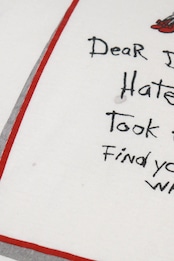 Dear
Hate
Took
Find yo